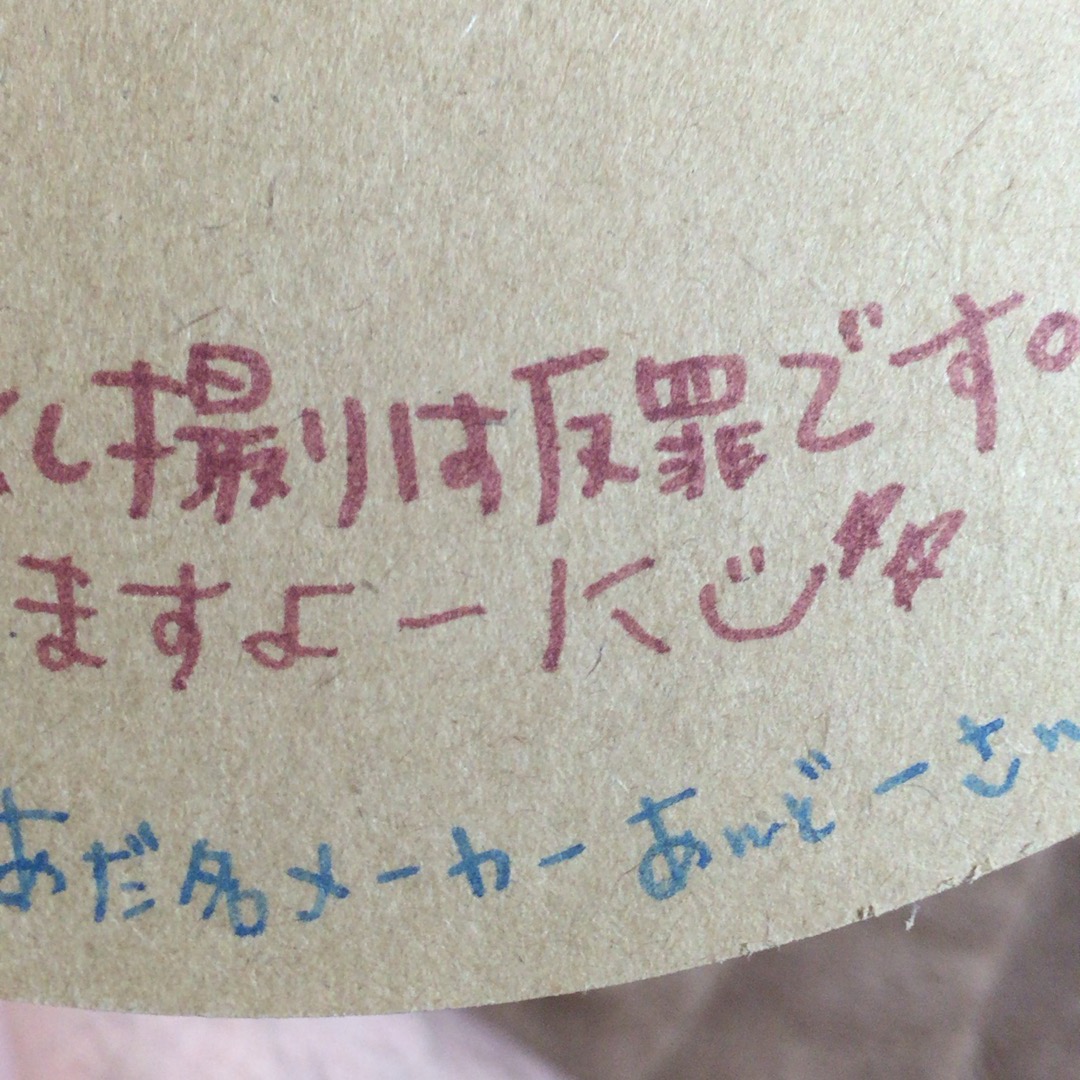 し撮りは反罪です。
ますよー
あだ名メーカーあんどーさん